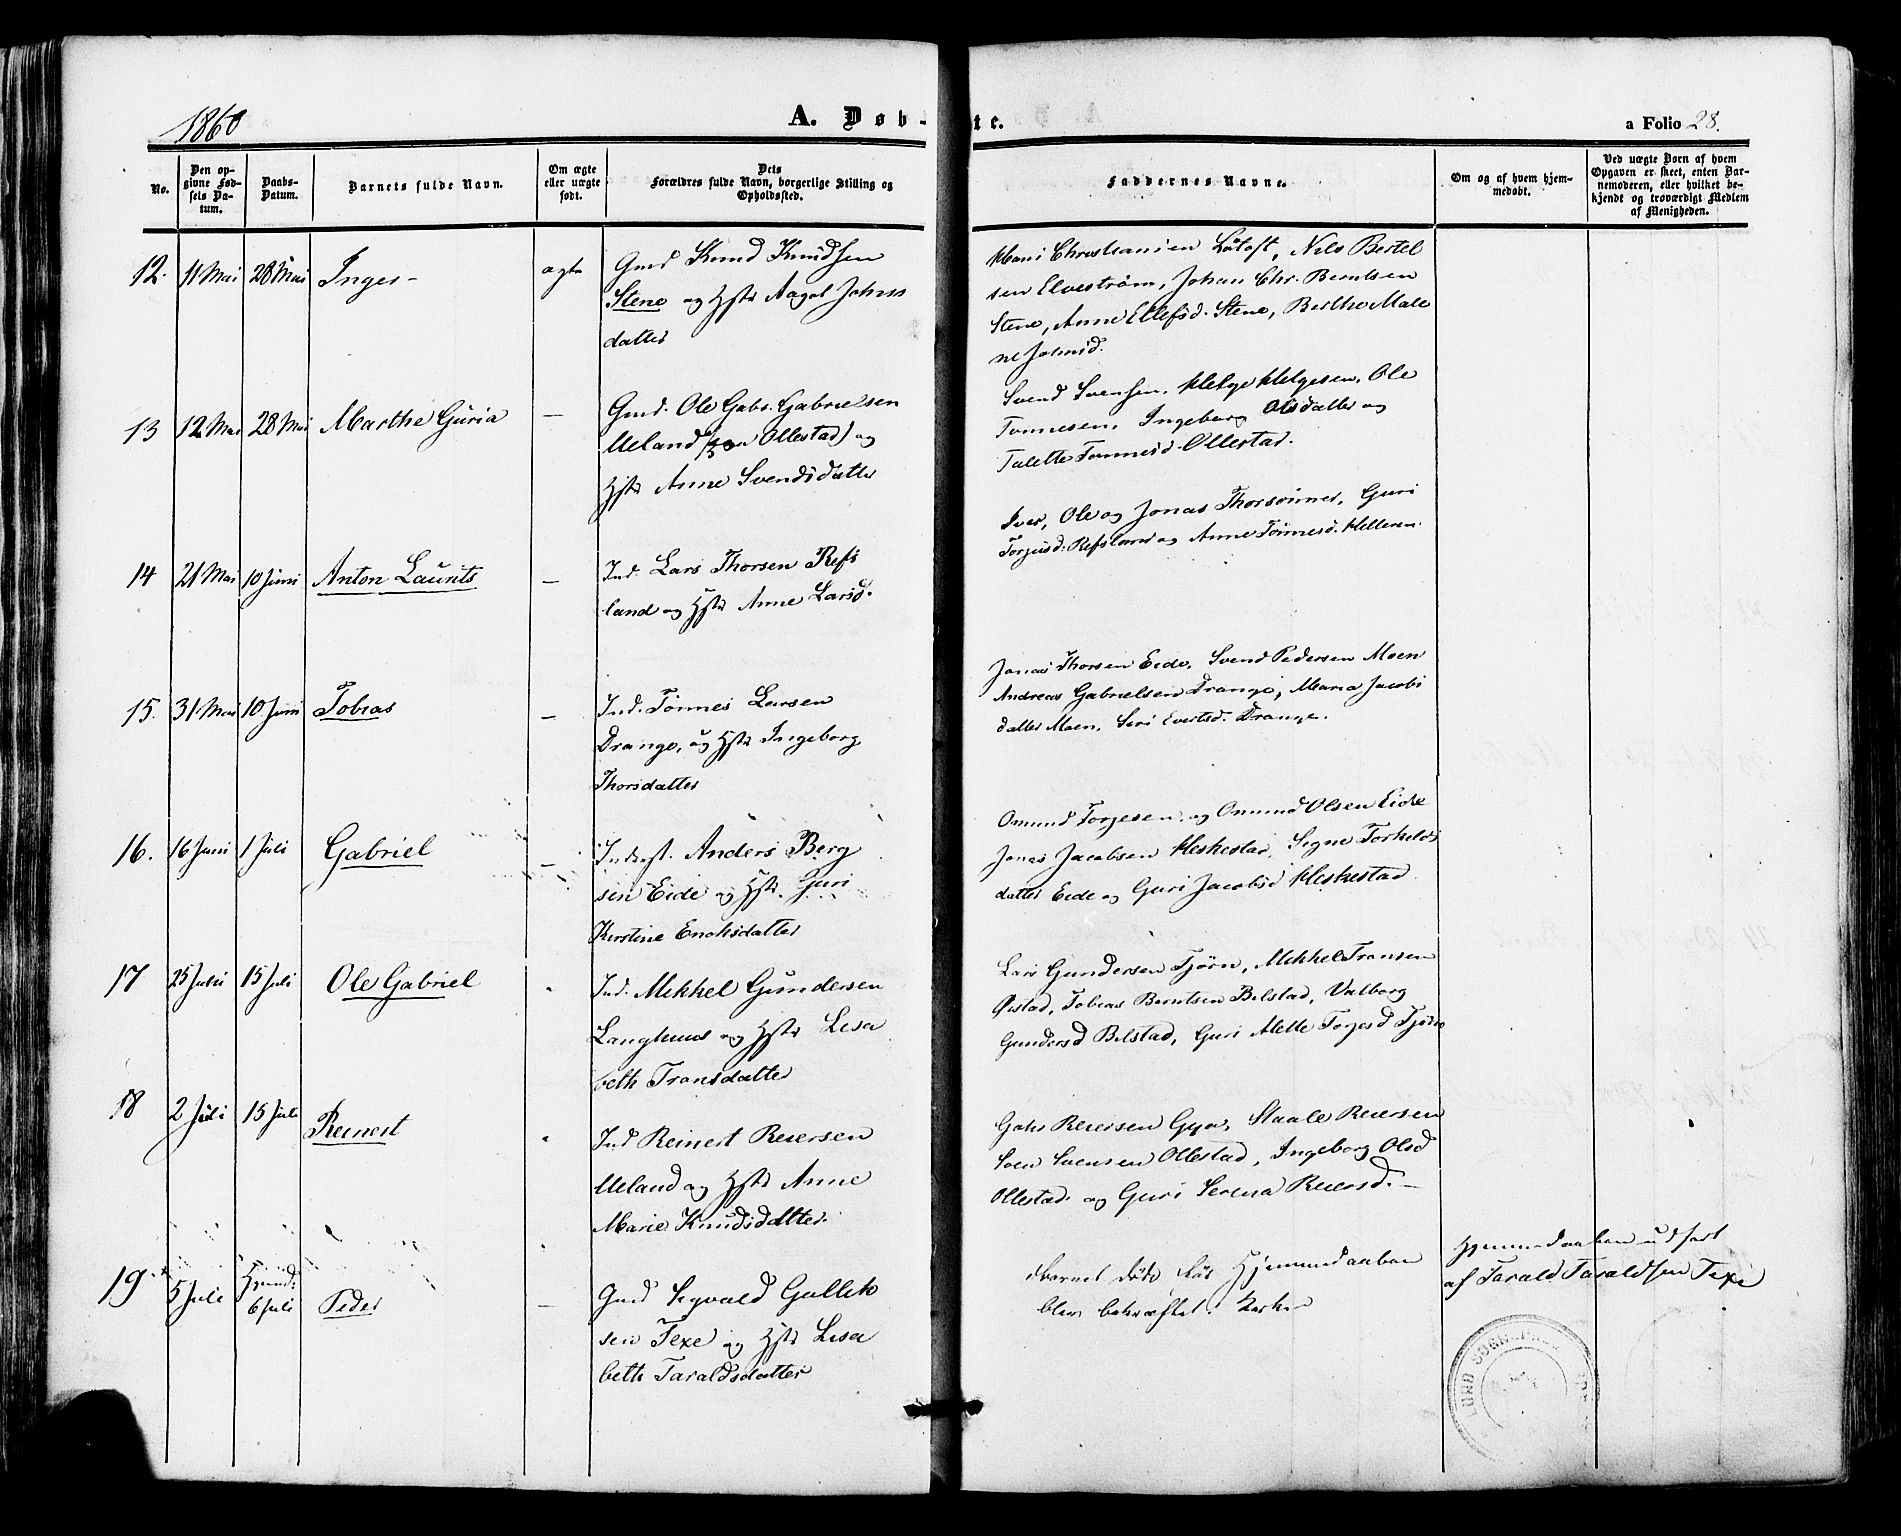 1860
A. Døb-
te.
a Folio 28.
No.
Den op-
givne Fød-
sels Da-
tum.
Daabs-
Datum.
Barnets fulde Navn.
Om ægte
eller uægte
født.
Dets
Forældres fulde Navn, borgerlige Stilling og
Opholdssted.
Faddernes Navne.
Om og af hvem hjem-
medøbt.
Ved uægte Børn af hvem
Opgaven er skeet, enten Bar-
nemoderen, eller hvilket be-
kjendt og troværdigt Medlem
af Menigheden.
12.
11 Mai
28 Mai
Inger
ægte
Gmd Knud Knudsen
Stene og Hstr Aagot Johns
datter
Hans Christiansen Løtoft, Nils Bertel
sen Elvestrøm, Johan Chr. Berntsen
Stene, Anne Ellefsd. Stene, Berthe Male
ne Johnsd.
13
12 Mai
28 Mai
Marthe Guria
—
Gmd. Ole Gabr. Gabrielsen
Ueland (Ollestad) og
Hstr Anne Svendsdatter
Svend Svensen, Helge Helgesen, Ole
Tønnesen, Ingeborg Olsdatter og
Talette Tønnesd. Ollestad.
14
21 Mai
10 Juni
Anton Laurits
—
Ind. Lars Thorsen Refs
land og Hstr Anne Larsd.
Iver, Ole og Jonas Thorsønner, Guri
Torjusd. Refsland og Anne Tønnesd. Helleren
15.
31 Mai
10 Juni
Tobias
—
Ind. Tønnes Larsen
Drange, og Hstr Ingeborg
Thorsdatter
Jonas Thorsen Eide, Svend Pedersen Moen
Andreas Gabrielsen Drange, Maria Jacobs
datter Moen, Siri Evertsd. Drange.
16.
16 Juni
1 Juli
Gabriel
—
Inderst. Anders Berg
sen Eide og Hstr. Guri
Kirstine Enoksdatter
Omund Torjesen og Omund Olsen Eide
Jonas Jacobsen Heskestad, Signe Torkelds
datter Eide og Guri Jacobsd Heskestad
17
25 Juni
15 Juli
Ole Gabriel
Ind. Mikkel Gundersen
Langhuus og Hstr Lisa
beth Tronsdatter
Lars Gundersen Tjørn, Mikkel Tronsen
Ørstad, Tobias Berntsen Bilstad, Valborg
Gundersd Bilstad, Guri Mette Torjesd Tjørn
18
2 Juli
15 Juli
Reinert
Ind Reinert Reiersen
Ueland og Hstr Anne
Marie Knudsdatter.
Gabr Reiersen Gya, Staale Reiersen
Sven Svensen Ollestad, Ingeborg Olsd
Ollestad og Guri Serena Reiersd.
19
5 Juli
Hjemd.
6 Juli
Peder
—
Gmd Sigvald Gullik
sen Texe og Hstr Lisa
beth Taraldsdatter
Barnet døde før Hjemmedaaben
blev bekræftet i Kirken
Hjemmedaaben udført
af Tarald Taraldsen Texe
LUND SOGNEPRE